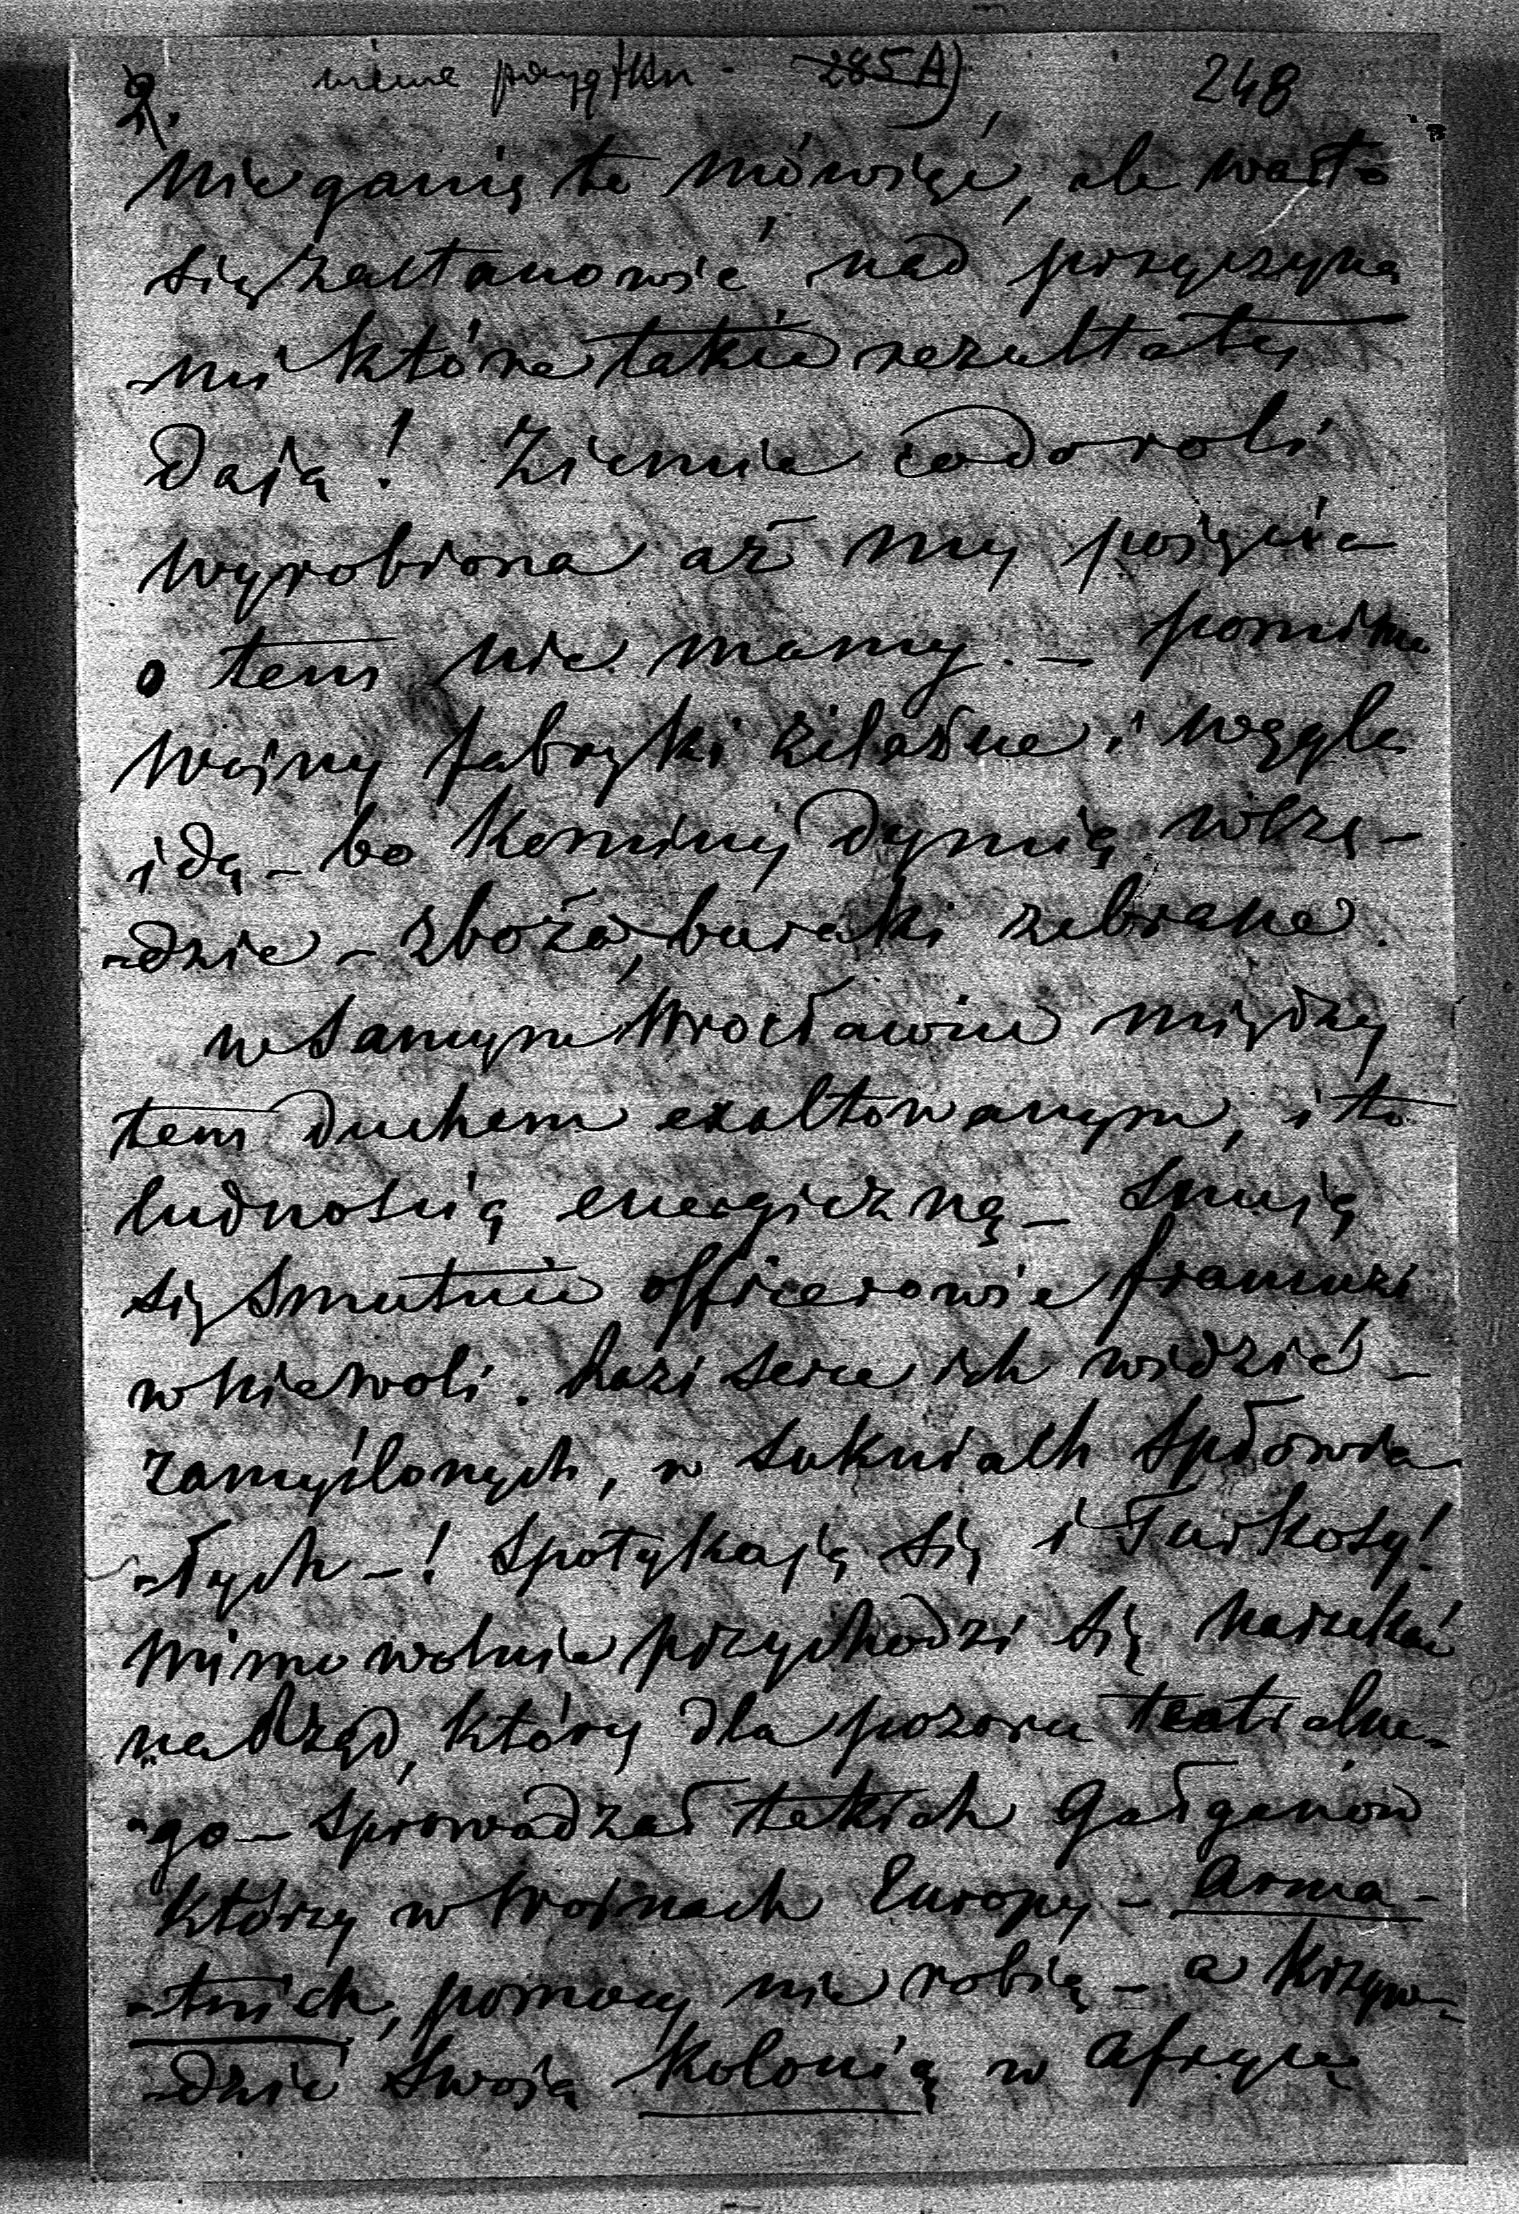 2. nie ma początku - 285 A) 248
Nie ganię to mówiąc, ale warto
się zastanowić nad przyczyna
-mi które takie rezultaty
dają! Ziemia co do roli
wyrobiona aż my pojęcia
o tem nie mamy. – pomimo
wojny fabryki żelazne i węgla
idą – bo kominy dymią wszę-
-dzie – zboża, buraki zebrane.
w samym Wrocławiu między
tem duchem exaltowanym, i tą
ludnością energiczną – snują
się smutnie officerowie francuzi
w niewoli. Razi serce ich widzieć –
zamyślonych, w sukniach spłowia
-łych – ! Spotykają się i Turkosy!
Mimowolnie przychodzi się narzekać
na Rząd, który dla pozoru teatralne-
-go – sprowadzał takich Gałganów
którzy w Wojnach Europy – Arma-
-tnich, pomocy nie robią – a krzyw-
-dzić swoją Kolonią w Afryce